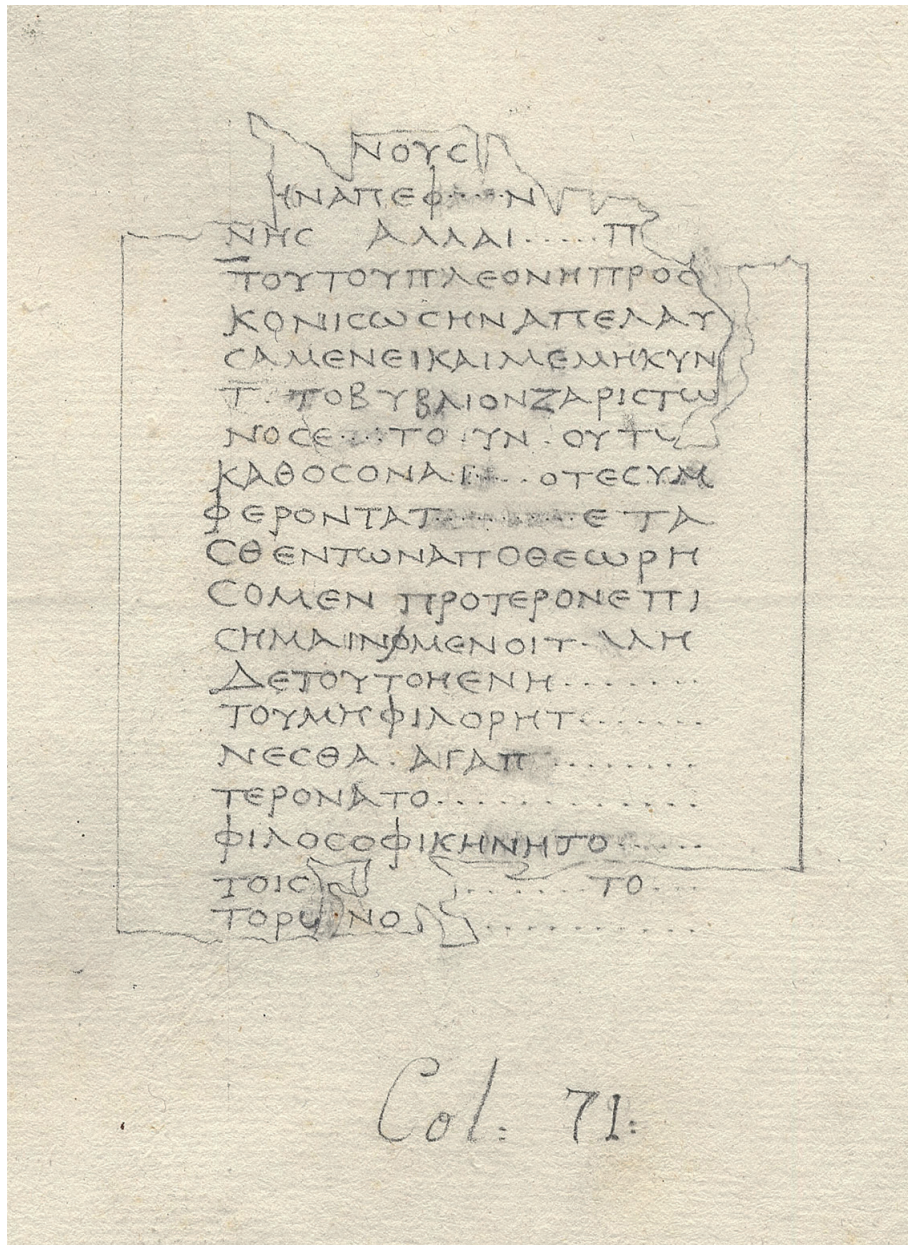 ΝΟΥС
ΗΝΑΠΕΦ....Ν
ΝΗС ΑΛΛΑΙ.....Π
ΤΟΥΤΟΥΠΛΕΟΝΗΠΡΟС
ΚΟΝΙСωСΗΝΑΠΕΛΑΥ
СΑΜΕΝΕΙΚΑΙΜΕΜΗΚΥΝ
Τ. ΤΟΒΥΒΛΙΟΝΖΑΡΙСΤω
ΝΟСΕ....ΤΟ.ΥΝ.ΟΥΤω
ΚΑΘΟСΟΝΑ.Ι...ΟΤΕСΥΜ
ΦΕΡΟΝΤΑΤ.......ΕΤΑ
СΘΕΝΤωΝΑΠΟΘΕωΡΗ
СΟΜΕΝ ΠΡΟΤΕΡΟΝΕΠΙ
СΗΜΑΙΝΟΜΕΝΟΙΤ.ΛΛΗ
ΔΕΤΟΥΤΟΗΕΝΗ.......
ΤΟΥΜΗΦΙΛΟΡΗΤ.......
ΝΕСΘΑ.ΑΓΑΠ........
ΤΕΡΟΝΑΤΟ............
ΦΙΛΟСΟΦΙΚΗΝΗΤΟ.....
ΤΟΙС .......ΤΟ...
ΤΟΡω.ΝΟ ...........
Col: 71: